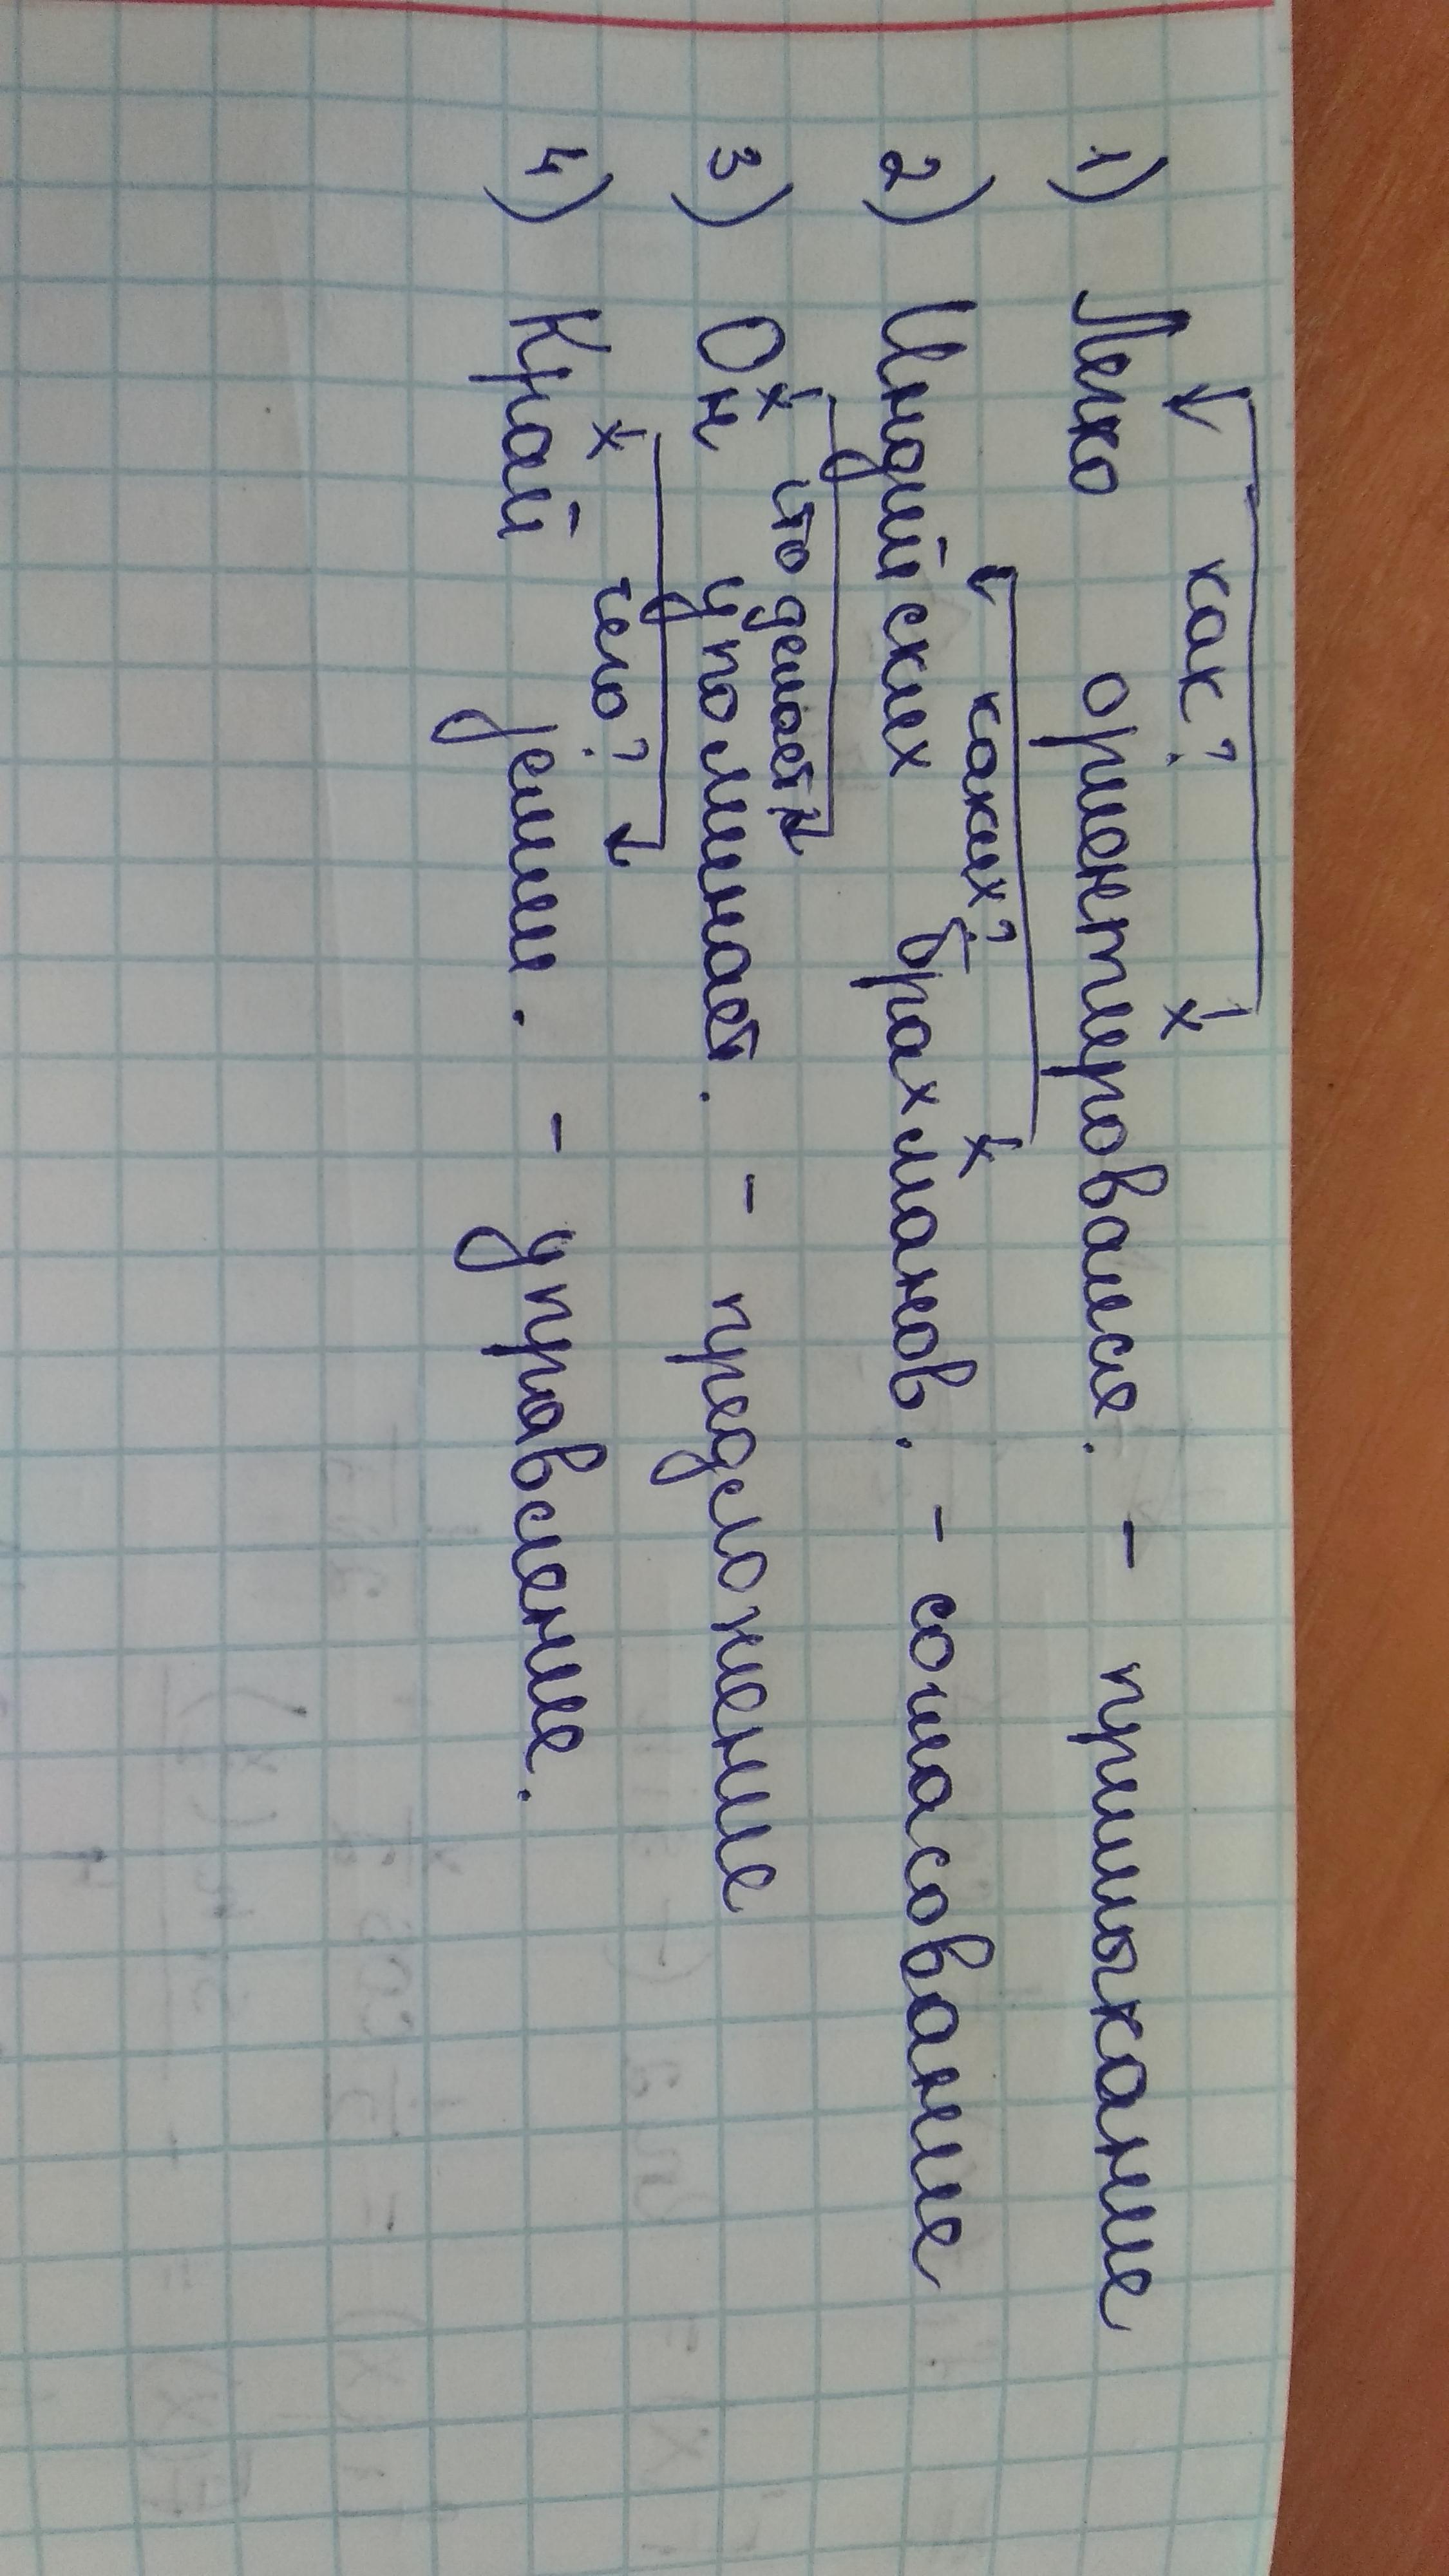 как?
1) Легко ориентировался. - примыкание
каких?
2) Индийских брахманов. - согласование
что делает?
3) Он упоминает. - предложение
чего?
4) Край земли. - управление.